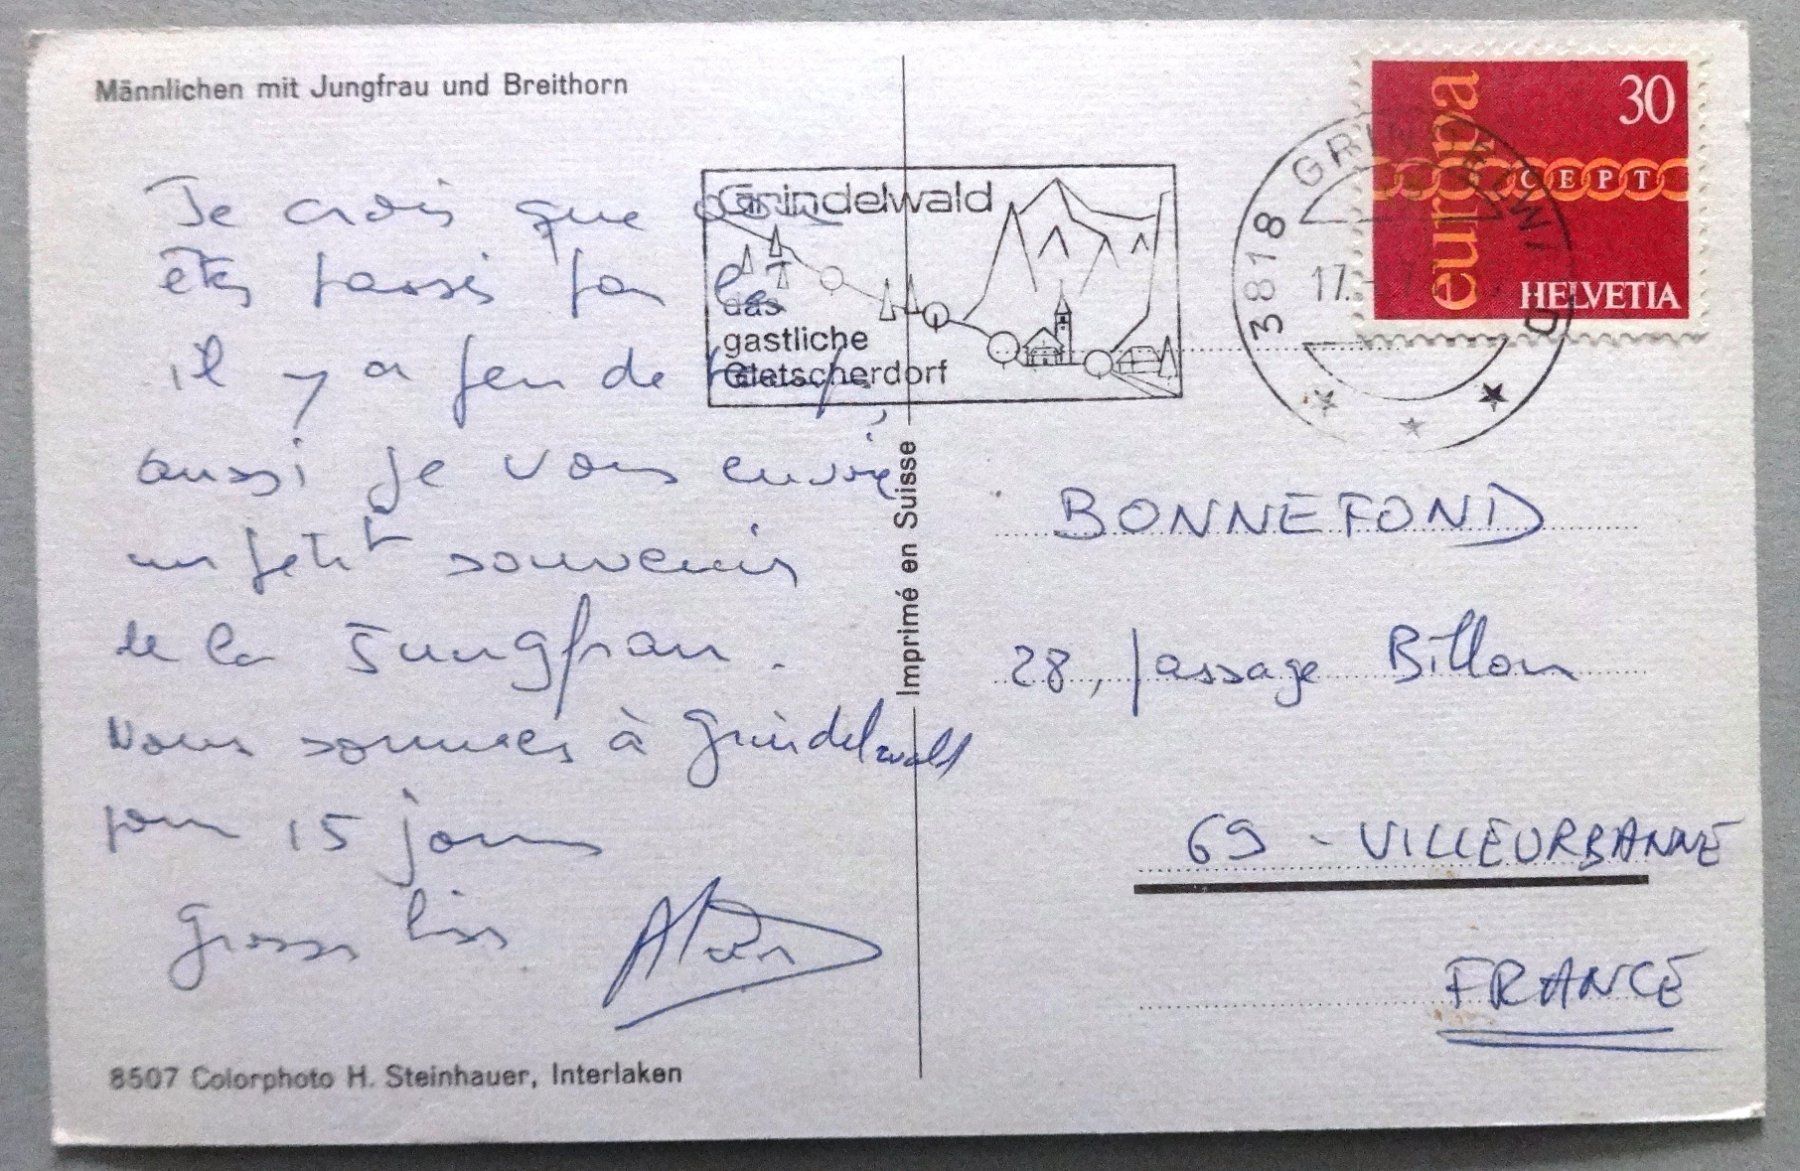 Männlichen mit Jungfrau und Breithorn
Je crois que vous
êtes passés par là
il y a peu de temps,
aussi je vous envoie
un petit souvenir
de la Jungfrau.
Nous sommes à Grindelwald
pour 15 jours
Grosses bises Alain
8507 Colorphoto H. Steinhauer, Interlaken
Imprimé en Suisse
Grindelwald
das
gastliche
Gletscherdorf
3818 GRINDELWALD
17.
europa
30
CEPT
HELVETIA
BONNEFOND
28, passage Billon
69 - VILLEURBANNE
FRANCE